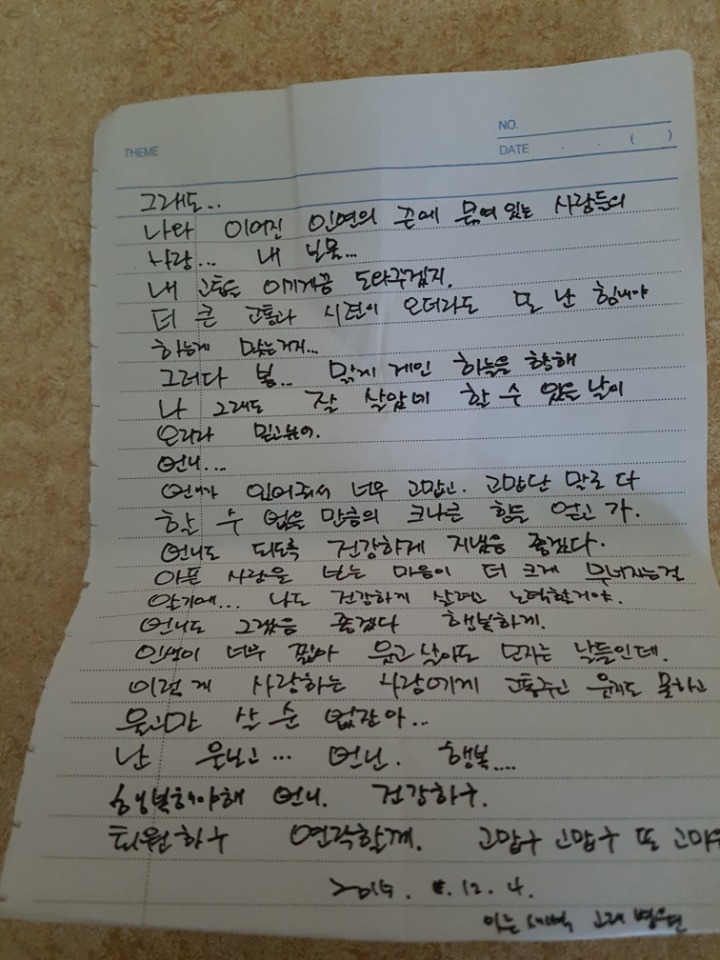 THEME
NO.
DATE . . ( )
그래도...
나와 이어진 인연의 끈에 묶여 있는 사람들의
사랑... 내 눈물...
내 고통을 이기게끔 도와주겠지.
더 큰 고통과 시련이 오더라도 또 난 힘내야
하는게 맞는거지...
그러다 봄... 맑게 개인 하늘을 향해
나 그래도 잘 살았네 할 수 있는 날이
오리라 믿고싶어.
언니...
언니가 있어줘서 너무 고맙고. 고맙단 말로 다
할 수 없을 만큼의 크나큰 힘을 얻고 가.
언니도 되도록 건강하게 지냈음 좋겠다.
아픈 사람을 보는 마음이 더 크게 무너지는걸
알기에... 나도 건강하게 살려고 노력할거야.
언니도 그랬음 좋겠다 행복하게.
인생이 너무 짧아 웃고 살아도 모자라는 날들인데.
이렇게 사랑하는 사람에게 고통주고 웃지도 못하고
울고만 살 순 없잖아..
난 웃는다... 언닌. 행복....
행복해야해 언니. 건강하구.
퇴원하구 연락할께. 고맙구 고맙구 또 고마워
12. 4.
새벽 고대 병원